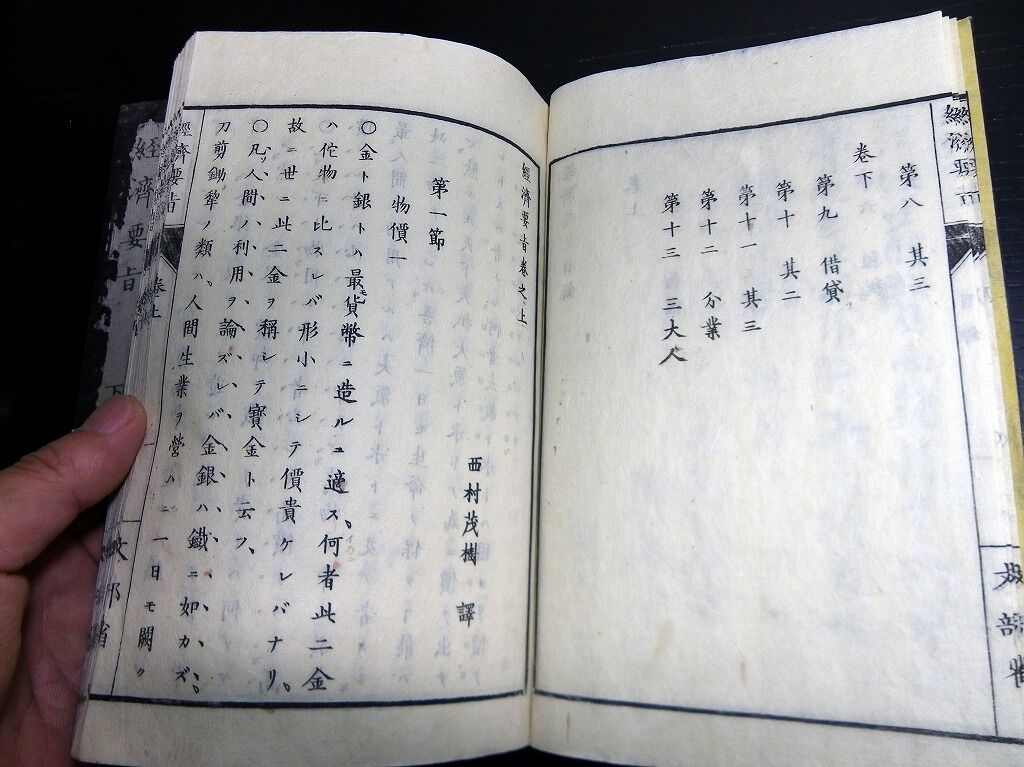 第八 其三
卷下
第九 借貸
第十 其二
第十一 其三
第十二 分業
第十三 三大人
經濟要旨卷之上
西村茂樹 譯
第一節
物價一
〇金ト銀トハ最モ貨幣ニ造ルニ適ス、何者此二金
ハ佗物ニ比スレバ形小ニシテ價貴ケレバナリ。
故ニ世ニ此二金ヲ稱シテ寶金ト云フ、
〇凡ソ人間ノ利用ヲ論ズレバ金銀ハ鐵ニ如カズ。
刀剪鋤犂ノ類ハ、人間生業ヲ營ムニ一日モ闕ク
經濟要旨
卷上
文部省